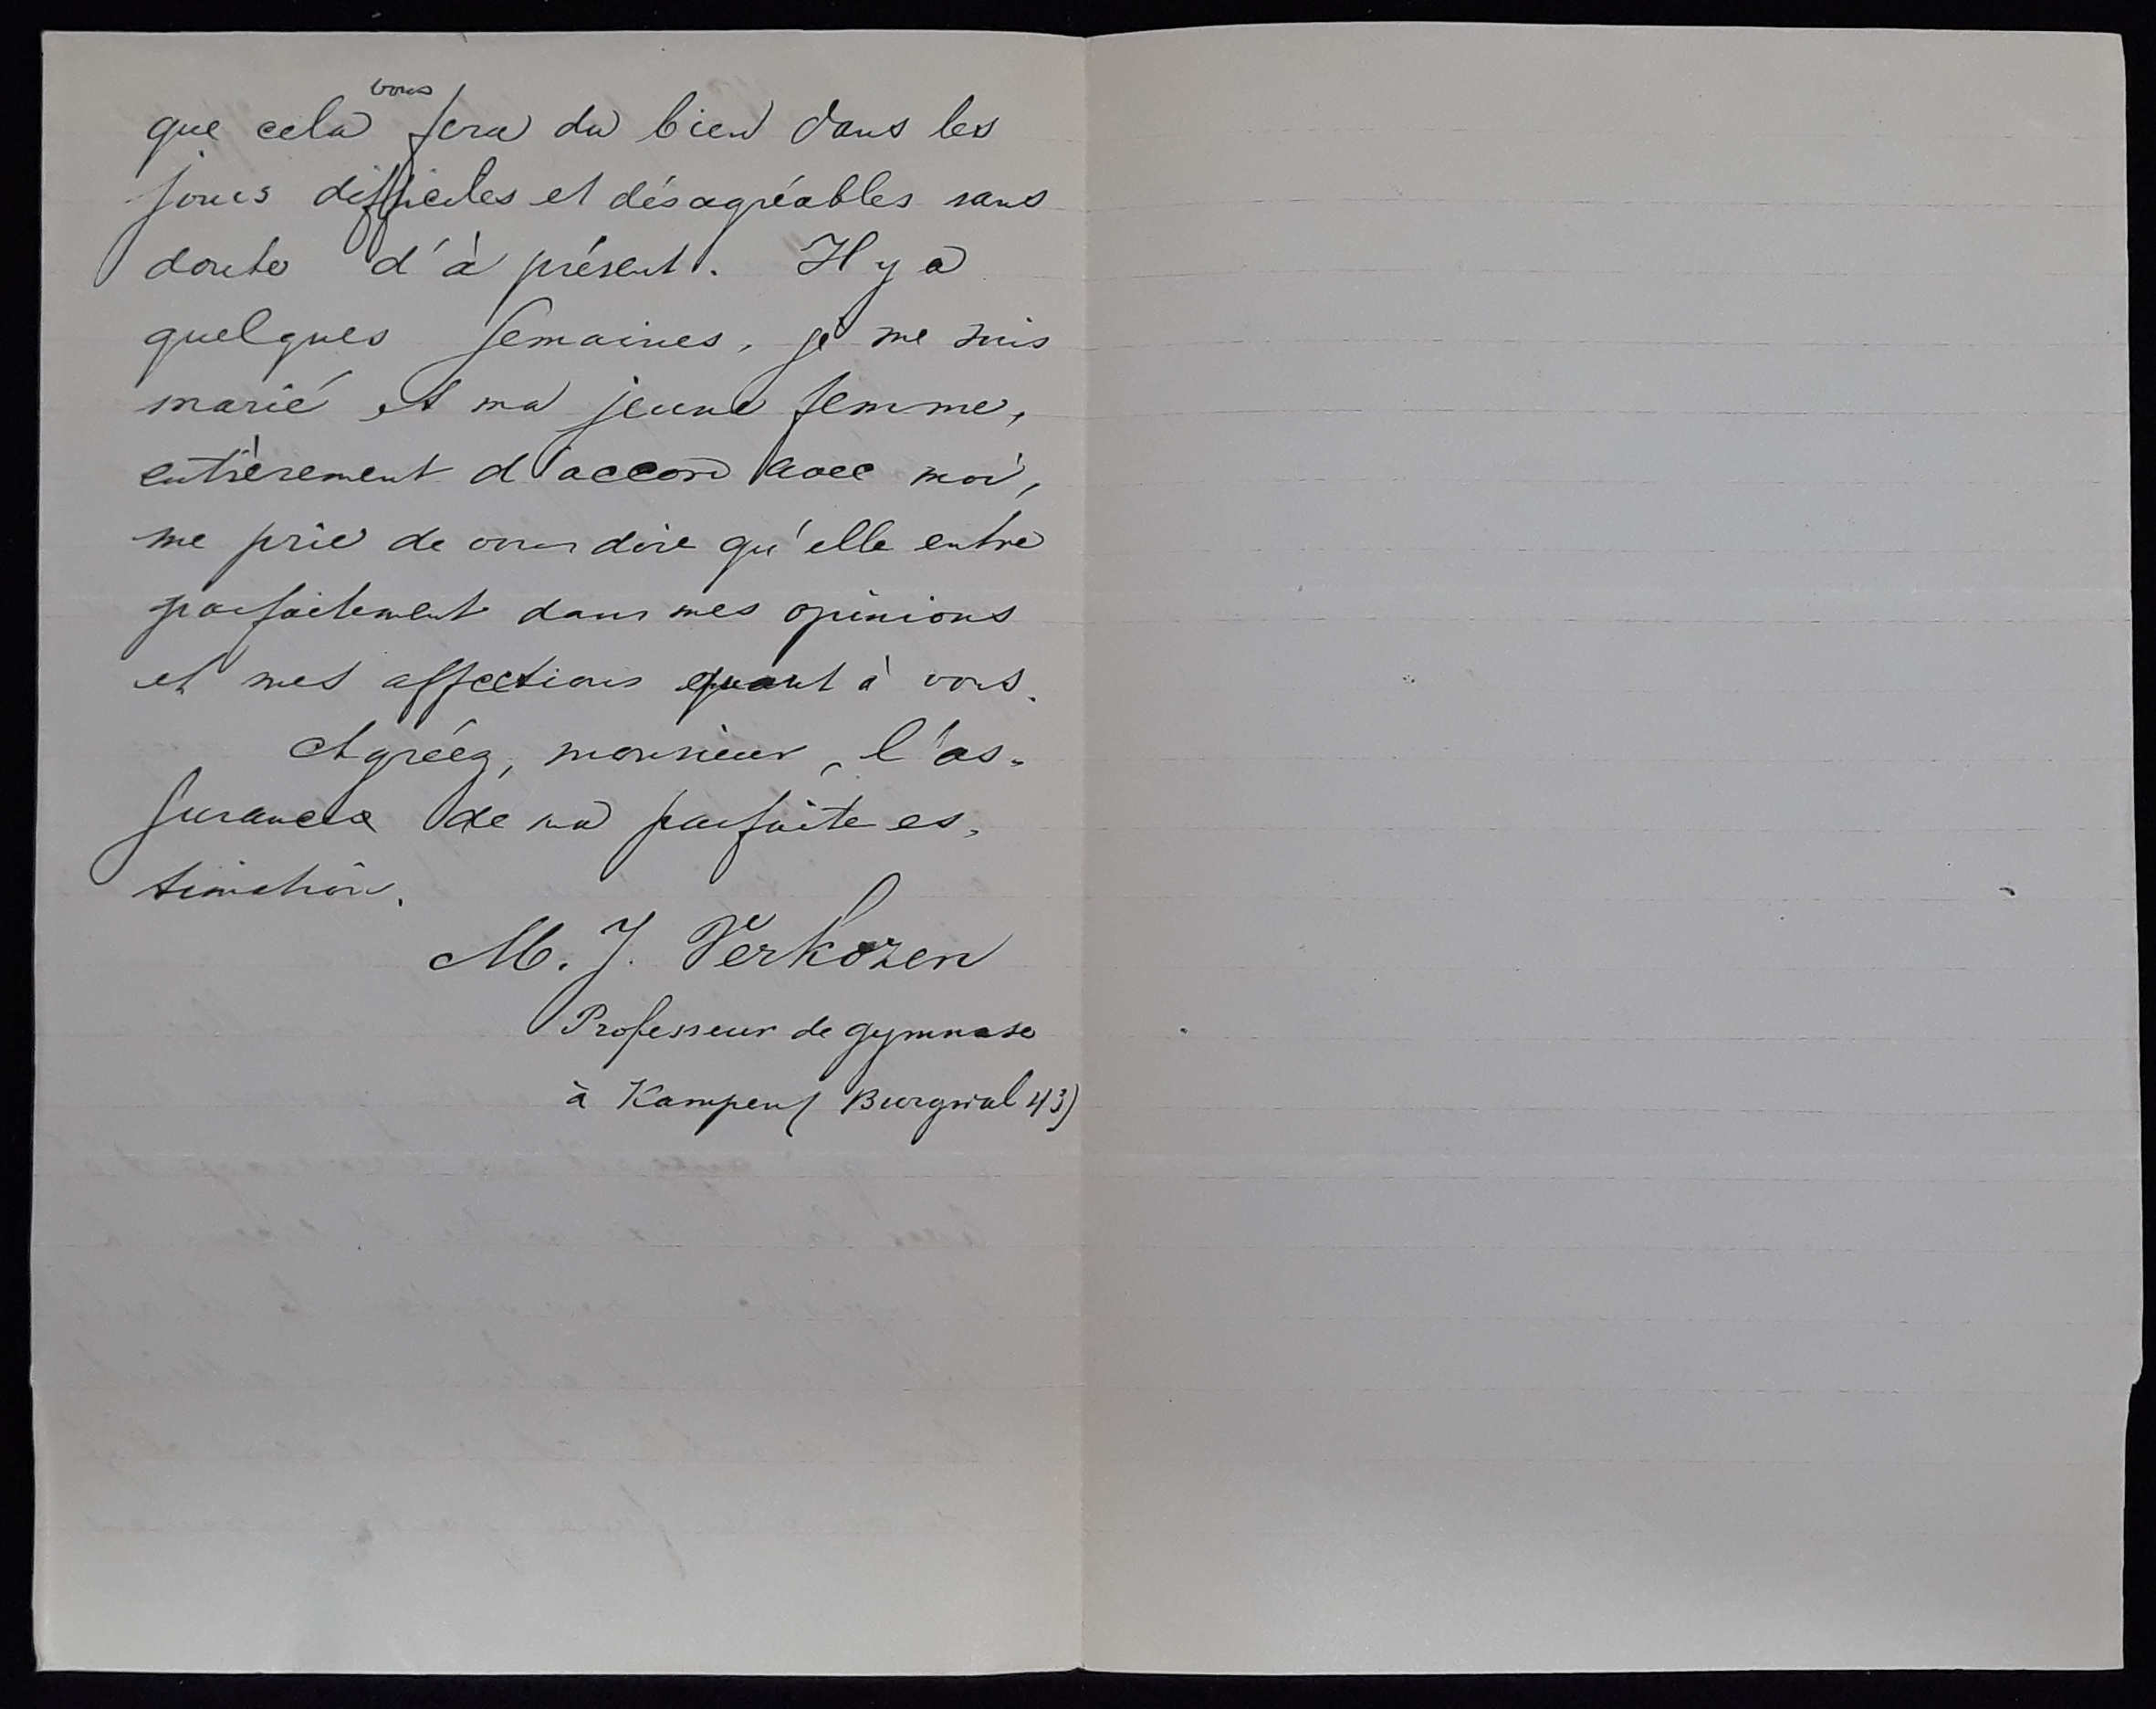 que cela vous fera du bien dans les
jours difficiles et désagréables sans
doute d'à présent. Il y a
quelques semaines, je me suis
marié et ma jeune femme,
entièrement d'accord avec moi,
me prie de vous dire qu'elle entre
parfaitement dans mes opinions
et mes affections quant à vous.
Agréez, monsieur, l'as-
surance de ma parfaite es-
timation.
M. J. Verkozen
Professeur de gymnase
à Kampen (Burgwal 43)